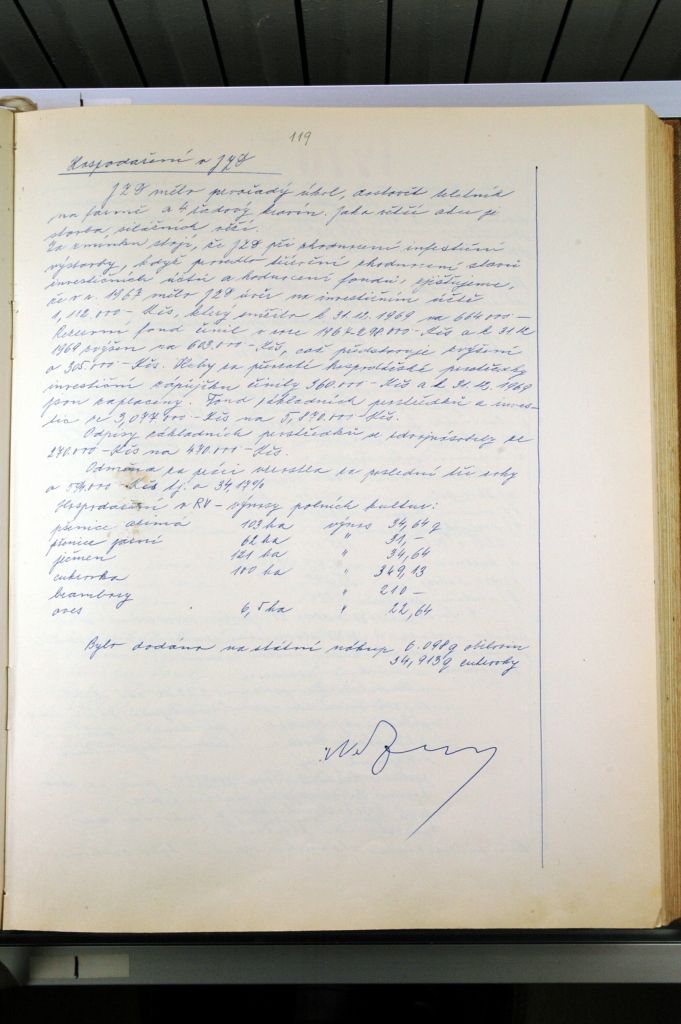 119
Hospodaření v JZD
JZD mělo pořadý úkol, dostavět teletník
na farmě a 4 řadový kravín. Jako větší akce je
stavba silážních věží.
Za zmínku stojí, že JZD při zhodnocení investiční
výstavby, když provedlo tříroční zhodnocení stavu
investičních účtů a hodnocení fondů, zjišťujeme,
že v r. 1967 mělo JZD úvěr na investičním účtě
1,112.000 – Kčs, který snížilo k 31.12. 1969 na 664.000 –
Rezervní fond činil v roce 1967 298.000 – Kčs a k 31.12.
1969 zvýšen na 603.000 – Kčs, což představuje zvýšení
o 305.000 – Kčs. Kdeby za převzaté hospodářské prostředky
investiční zápůjčku činily 360.000 – Kčs a k 31.12. 1969
jsou zaplaceny. Fond základních prostředků a inves-
tic ze 3,077.000 – Kčs na 5,870.000 – Kčs.
Odpisy základních prostředků se zdvojnásobily ze
270.000 – Kčs na 470.000 – Kčs.
Odměna za práci vzrostla za poslední tři roky
o 594.000 – Kčs tj. o 34,17%
Hospodaření v RV – výnosy polních kultur:
pšenice ozimá 103 ha výnos 34,64 q
pšenice jarní 62 ha " 31,–
ječmen 121 ha " 34,64
cukrovka 100 ha " 349,13
brambory " 210 –
oves 6,5 ha " 22,64
Bylo dodáno na státní nákup 6.098 q obilovin
34,913 q cukrovky